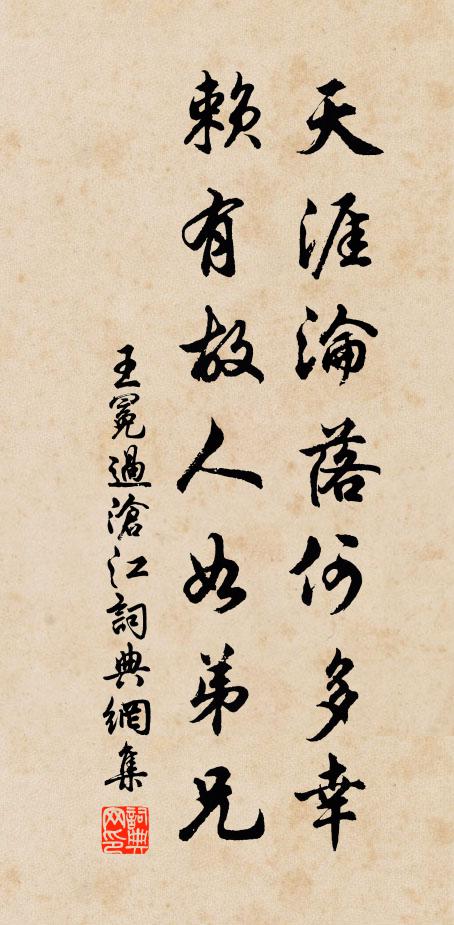 天涯淪落何多幸
賴有故人如弟兄
王冕過滄江詞典網集
詞典網印